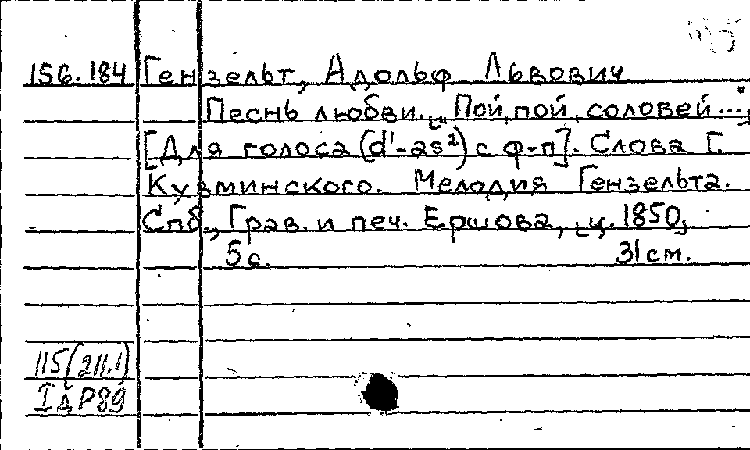 156.184 Гензельт, Адольф Львович
Песнь любви. „Пой, пой, соловей...“
[Для голоса (d'-as²) с ф-п]. Слова Г.
Кузминского. Мелодия Гензельта.
Спб., Грав. и печ. Ершова, ц. 1850,
5с. 31 см.
115(211.1)
IдР89